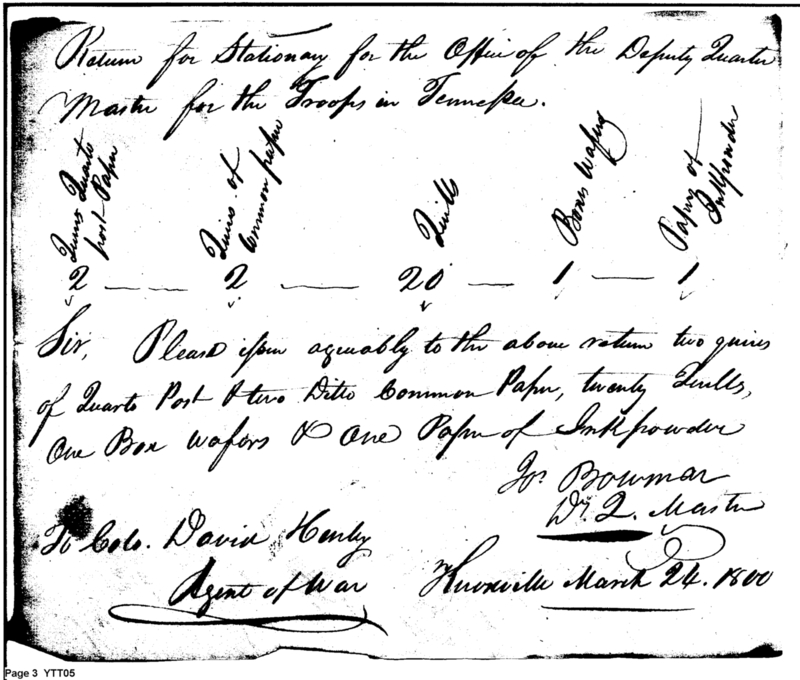 Return for Stationary for the Office of the Deputy Quarter
Master for the Troops in Tennessee.
Quires Quarto
post Paper
Quires of
Common paper
Quills
Boxes Wafers
Papers of
Inkpowder
2 — — 2 — 20 — 1 — 1
Sir, Please issue agreeably to the above return two quires
of Quarto Post & two Ditto Common Paper, twenty Quills,
One Box Wafers & One Paper of Inkpowder
Jos. Bowmar
Dy. Q. Master
To Colo. David Henly
Agent of War
Knoxville March 24. 1800
Page 3 YTT05